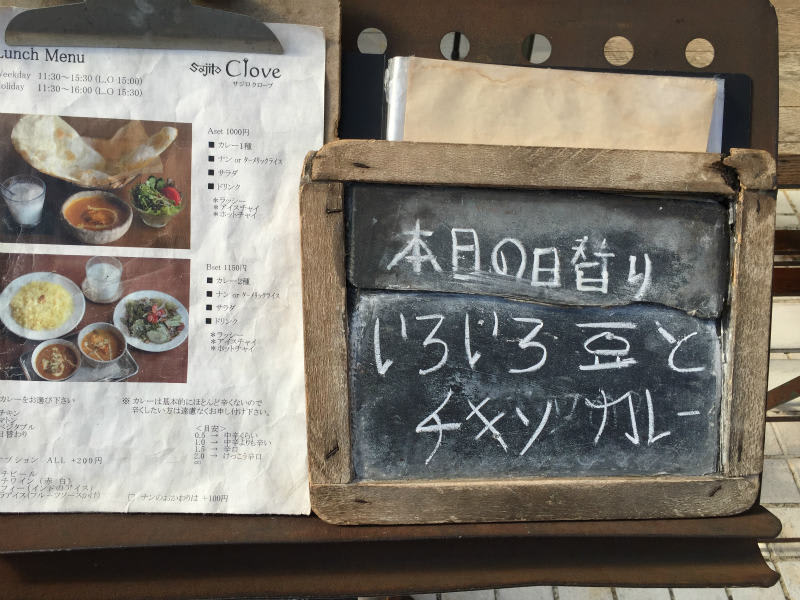 Lunch Menu
Sajilo Clove
サジロクローブ
Weekday 11:30～15:30 (L.O 15:00)
Holiday 11:30～16:00 (L.O 15:30)
Aset 1000円
■ カレー1種
■ ナン or ターメリックライス
■ サラダ
■ ドリンク
＊ラッシー
＊アイスチャイ
＊ホットチャイ
Bset 1150円
■ カレー2種
■ ナン or ターメリックライス
■ サラダ
■ ドリンク
＊ラッシー
＊アイスチャイ
＊ホットチャイ
カレーをお選び下さい
チキン
マトン
ベジタブル
日替わり
※ カレーは基本的にほとんど辛くないので
辛くしたい方は遠慮なくお申し付け下さい。
＜目安＞
0.5 → 中辛ぐらい
1.0 → 中辛よりも辛い
1.5 → 辛口
2.0 → けっこう辛口
∞
プション ALL +200円
チビール
チワイン（赤 白）
フィー（インドのアイス）
ラアイス(フルーツソースかけ)
ナンのおかわりは +100円
本日の日替り
いろいろ豆と
チキンカレー